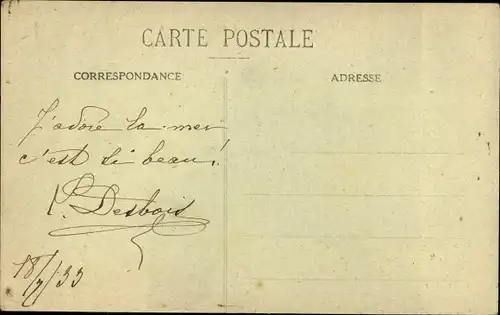 CARTE POSTALE
CORRESPONDANCE
ADRESSE
J'adore la mer
c'est si beau!
Desbois
18/7/33